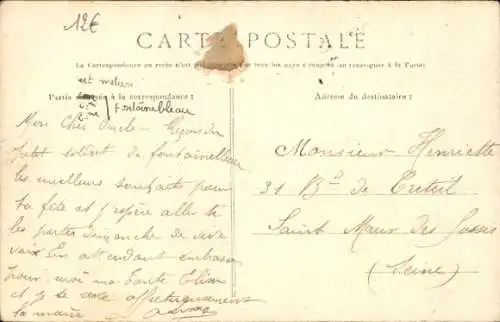 12€
CARTE POSTALE
La Correspondance au recto n'est pas tous les pays étrangers se renseigner à la Poste
et meleun
Partie à la correspondance :
fontainebleau
Adresse du destinataire :
Mon Cher Oncle - Reçois du
petit soldat de fontainebleau
les meilleurs souhaits pour
ta fête et j'espère aller te
les porter dimanche de vive
voix En attendant embrasse
pour moi ma Tante Elisa
et je te serre affectueusement
la main
Monsieur Henriette
31 Bd de Creteil
Saint Maur des Fossés
(Seine)